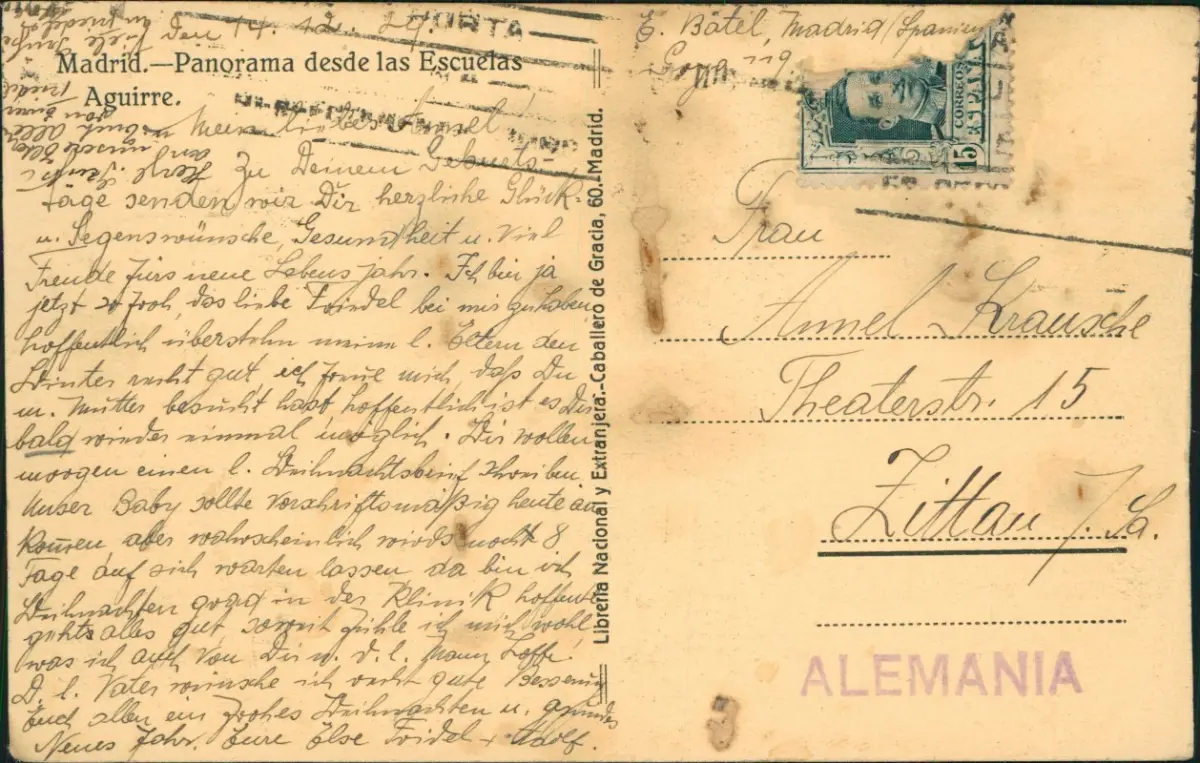 Den 14. 12. 29.
Madrid.—Panorama desde las Escuelas
Aguirre.
Mein liebes Annel
Zu Deinem Geburts-
tage senden wir Dir herzliche Glück-
u. Segenswünsche, Gesundheit u. viel
Freude fürs neue Lebensjahr. Ich bin ja
jetzt so froh, das liebe Friedel bei mir zu haben
hoffentlich überstehn meine l. Eltern den
Winter recht gut, ich freue mich, daß Du
m. Mutter besucht hast hoffentlich ist es Dir
bald wieder einmal möglich. Wir wollen
morgen einen l. Weihnachtsbrief schreiben.
Unser Baby sollte vorschriftsmäßig heute an
kommen, aber wahrscheinlich wirds noch 8
Tage auf sich warten lassen da bin ich
Weihnachten grad in der Klinik hoffentl.
gehts alles gut, soweit fühle ich mich wohl,
was ich auch von Dir u. d. l. Mann hoffe.
D. l. Vater wünsche ich recht gute Besserung
Euch allen ein frohes Weihnachten u. gesundes
Neues Jahr. Eure Else Friedel + Adolf.
Librería Nacional y Extranjera.-Caballero de Gracia, 60.-Madrid.
E. Botel, Madrid/Spanien
Goya 119
CORREOS
ESPAÑA
15
Frau
Annel Krausche
Theaterstr. 15
Zittau i. Sa.
ALEMANIA